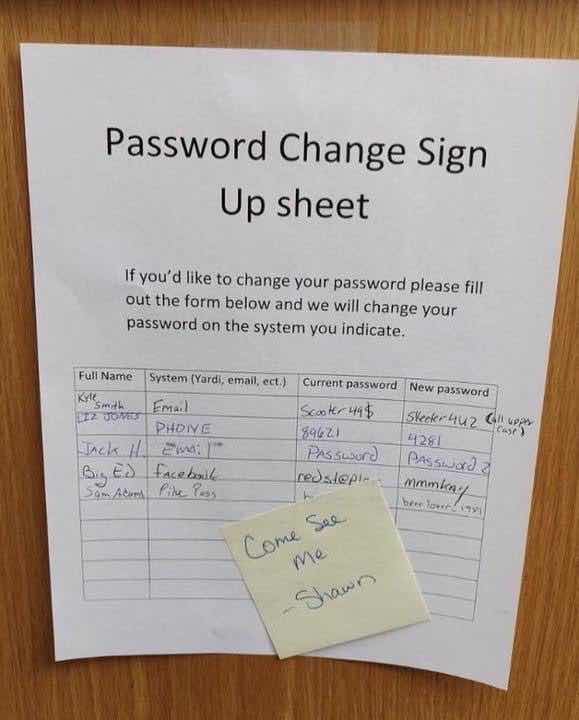 Password Change Sign
Up sheet
If you'd like to change your password please fill
out the form below and we will change your
password on the system you indicate.
Full Name System (Yardi, email, ect.) Current password New password
Kyle Smith Email Scooter49$ Skeeter4U2 (all upper case)
LIZ JONES PHONE 89621 4281
Jack H. Email Password Password2
Big Ed Facebook mmmkay
Sam Adams Pike Pass beerlover_1981
Come See
Me
-Shawn